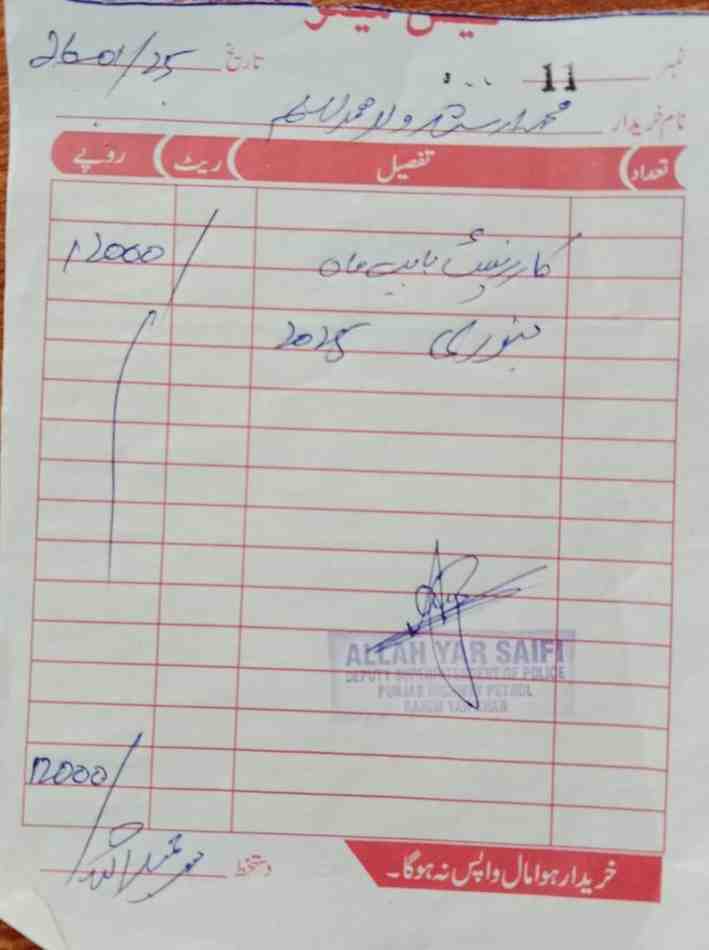 کیش میمو
نمبر 11 تاریخ 26-01/25
نام خریدار محمد ارشد ولد محمد اسلم
تعداد تفصیل ریٹ روپے
کار رینٹ بابت ماہ 12000/
جنوری 2025
ALLAH YAR SAIFI
DEPUTY SUPERINTENDENT OF POLICE
PUNJAB HIGHWAY PATROL
RAHIM YAR KHAN
12000/
خریدا ہوا مال واپس نہ ہوگا۔ دستخط